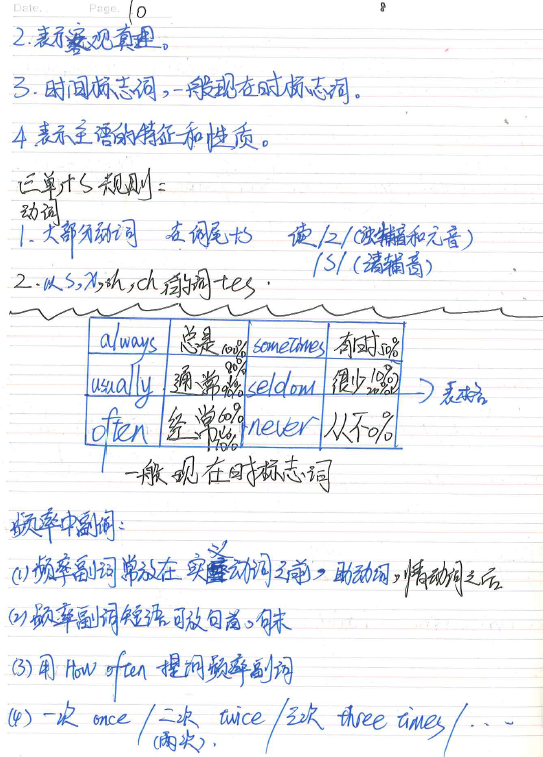 Date. Page. 10
8
2.表示客观真理。
3.时间标志词,一般现在时标志词。
4 表示主语的特征和性质。
三单+S 规则:
动词
1. 大部分动词 在词尾+s 读/z/(浊辅音和元音)
/S/(清辅音)
2.以s,x,sh,ch,的词+es.
always 总是100% sometimes 有时50%
usually 通常90% seldom 很少10% 20%
often 经常60% 70% never 从不0%
→表格
一般现在时标志词
频率中副词:
(1)频率副词常放在实义动词之前,助动词,情动词之后
(2)频率副词短语可放句首。句末
(3)用 How often 提问频率副词
(4)一次 once / 二次 twice / 三次 three times / ....
(两次).